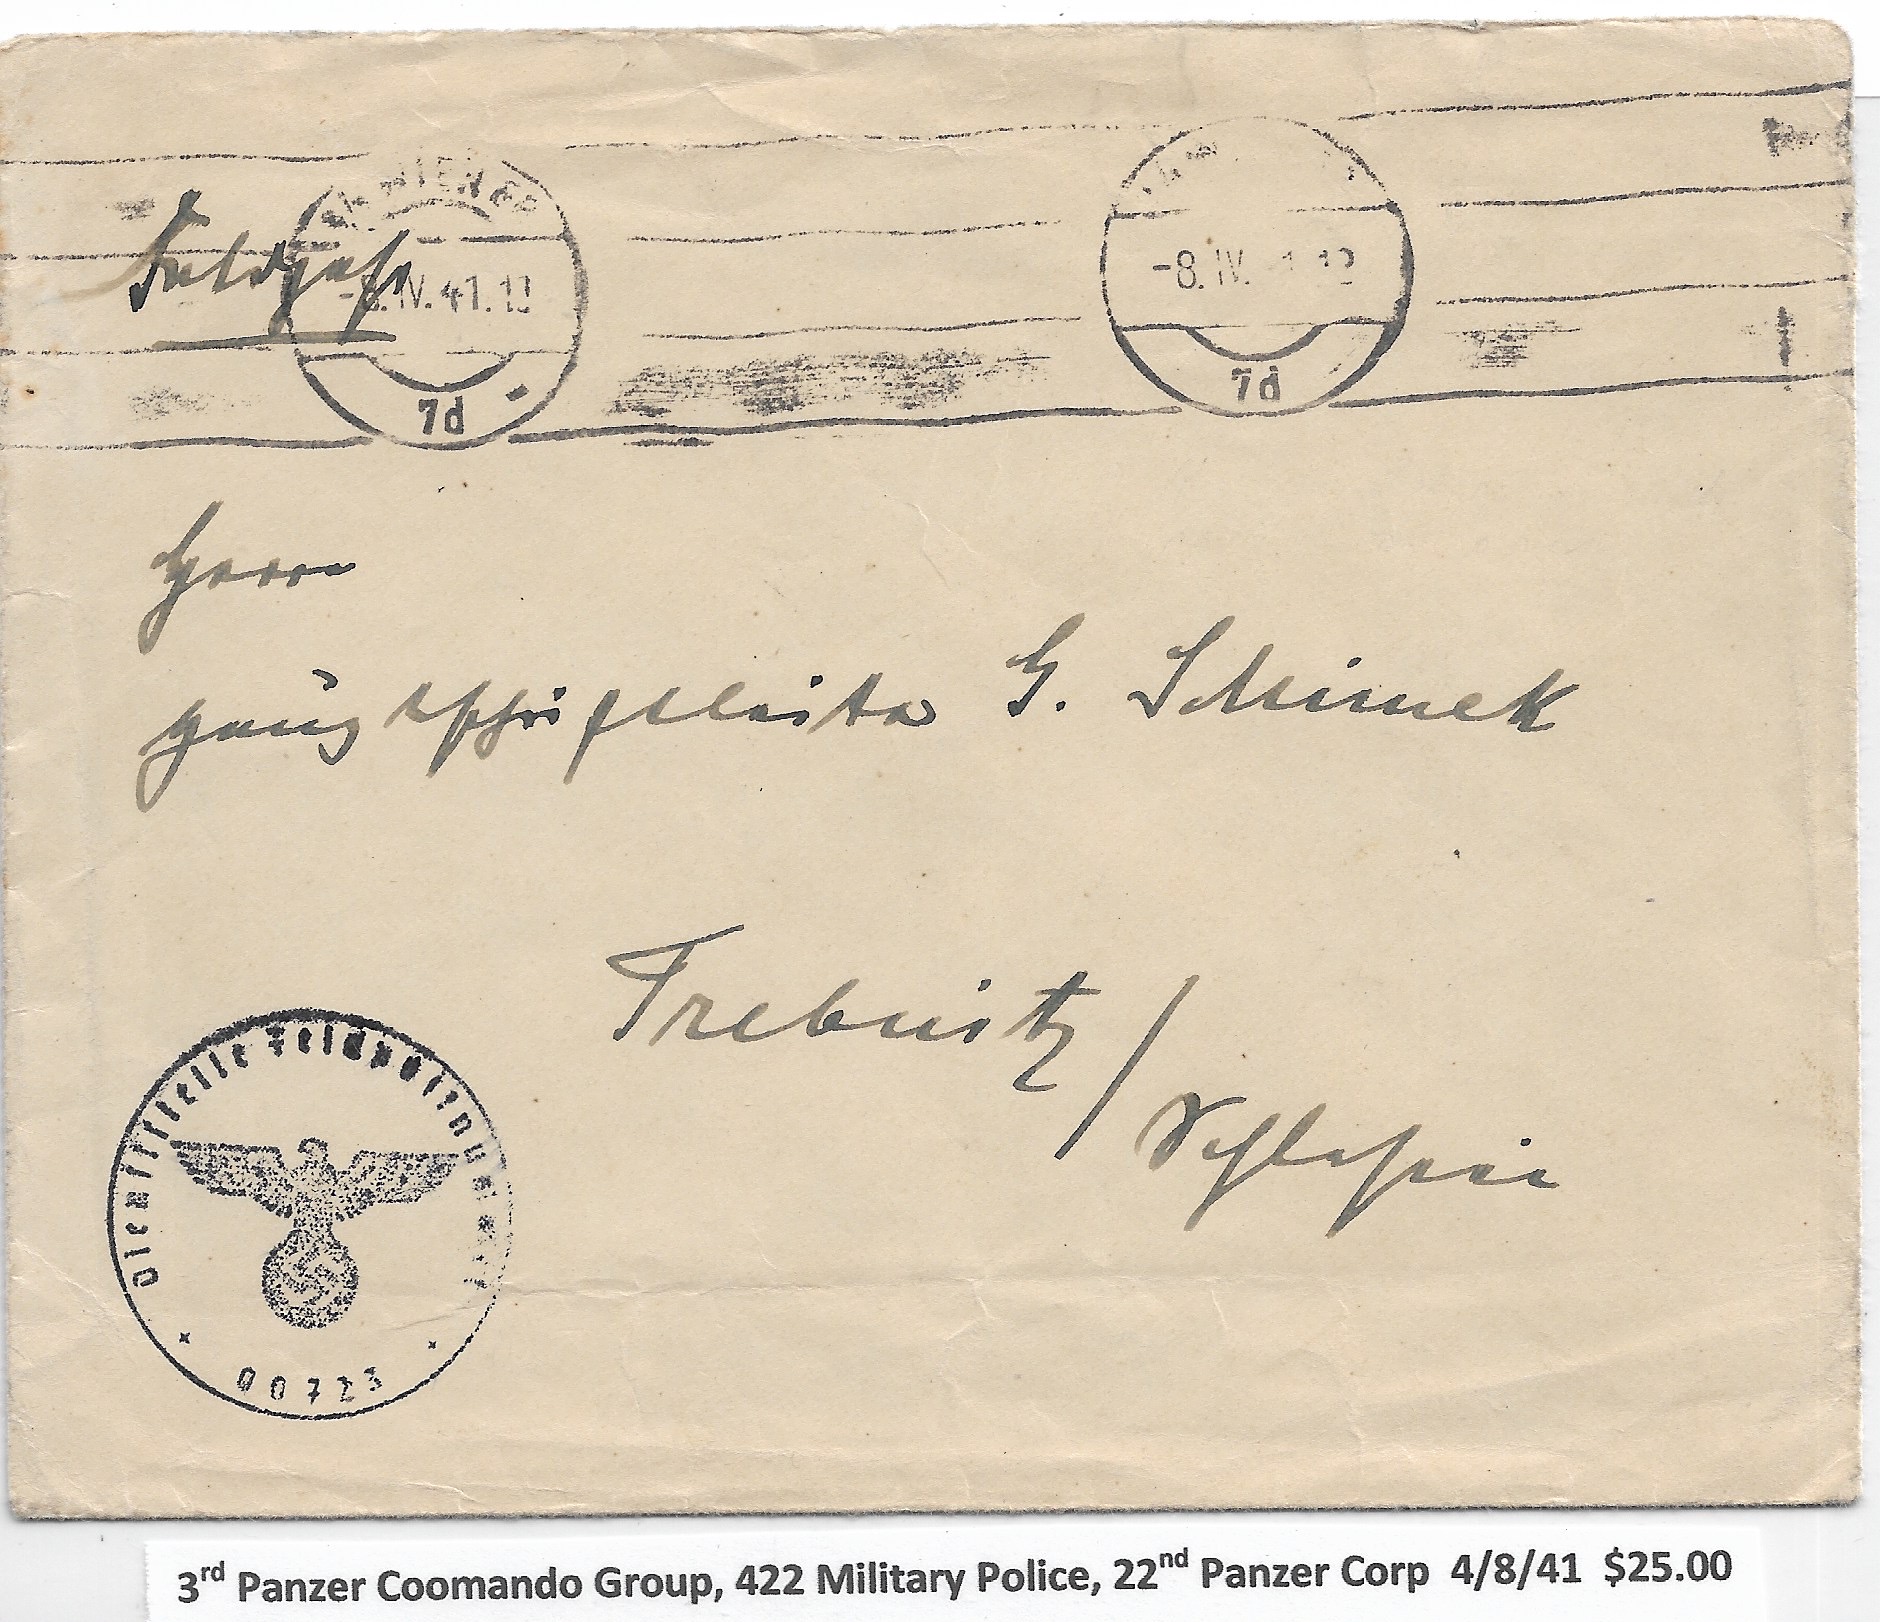 Feldpost
-8.IV.41.12
7d
-8.IV. 1 12
7d
Herrn
Hauptschriftleiter G. Schimek
Trebnitz/
Schlesien
Dienststelle Feldpostnummer
00723
3rd Panzer Coomando Group, 422 Military Police, 22nd Panzer Corp 4/8/41 $25.00